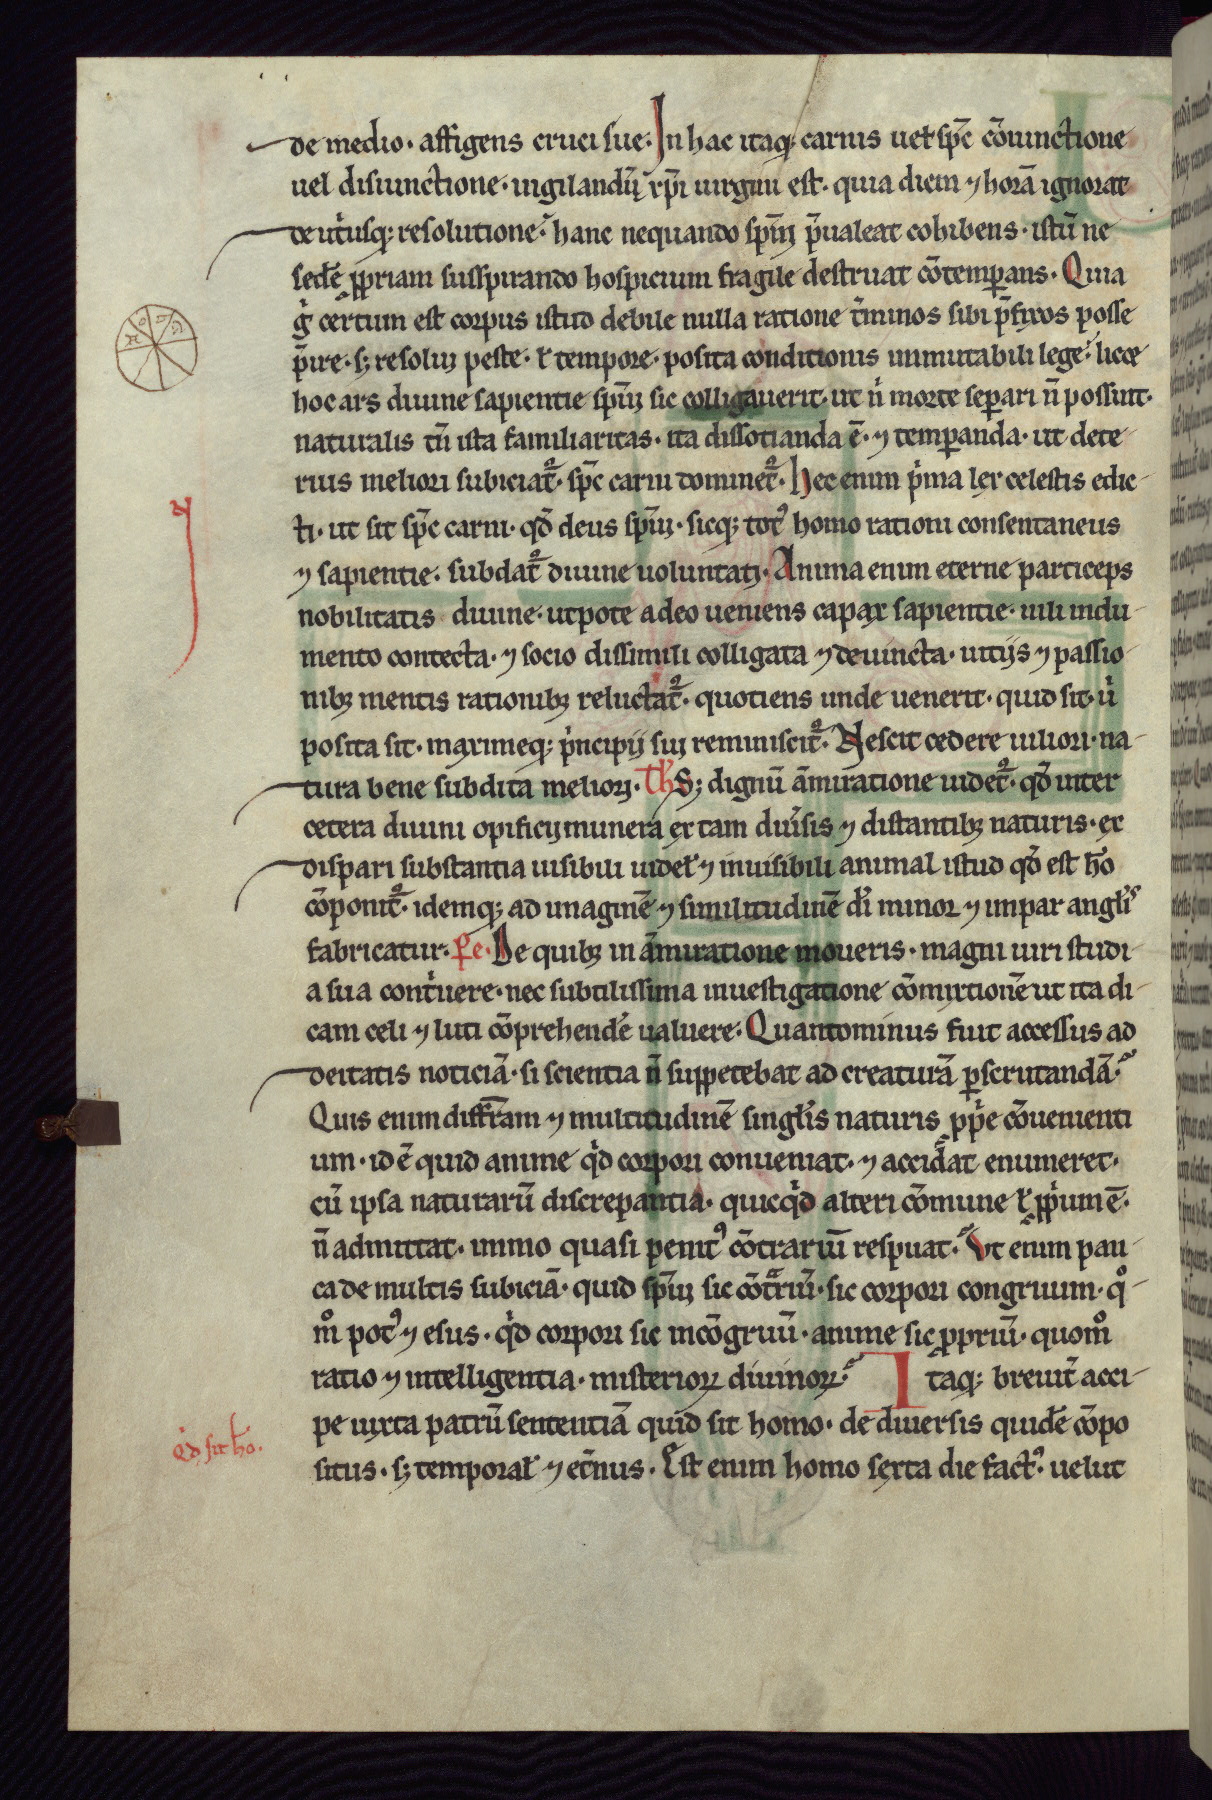 de medio· affigens cruci sue· In hac itaq; carnis uel sp̄c cōiunctione
uel disiunctione· uigilandū xp̄i uirgini est· quia diem ⁊ horā ignorat
de utˈusq; resolutione· hanc nequando sp̄m p̄ualeat cohibens· istū ne
sedē ꝓpriam suspirando hospicium fragile destruat cōtemꝑans· Quia
gͥ certum est corpus istud debile nulla ratione tˈminos sibi p̄fixos posse
p̄ire· sꝫ resolui peste· ł tempore· posita conditionis inmutabili lege· licet
hoc ars diuine sapientie sp̄ui sic colligauerit· ut nͥ morte seꝑari n̄ possint·
naturalis tn̄ ista familiaritas· ita dissotianda ē· ⁊ temꝑanda· ut dete
rius meliori subiciat᷑· sp̄c carni dominet᷑· Hec enim pͥma lex celestis edic
ti· ut sit sp̄c carni· qd̄ deus sp̄ui· sicq; totꝰ homo rationi consentaneus
⁊ sapientie· subdat᷑ diuine uoluntati· Anima enim eterne particeps
nobilitatis diuine· utpote a deo ueniens capax sapientie· uili indu
mento contecta· ⁊ socio dissimili colligata ⁊ deuincta· uitijs ⁊ passio
nibꝫ mentis rationibꝫ reluctat᷑· quotiens unde uenerit· quid sit· uͥ
posita sit· maximeq; pͥncipij sui reminiscit᷑· Nescit cedere uiliori· na
tura bene subdita meliori· Th̄ Sꝫ dignū āmiratione uidet᷑· qd̄ inter
cetera diuini opificij munera ex tam diuˈsis ⁊ distantibꝫ naturis· ex
dispari substantia uisibili uidelˈ ⁊ inuisibili animal istud qd̄ est hō
cōponit᷑· idemq; ad imaginē ⁊ similitudinē dˈi minor ⁊ impar anglˈis
fabricatur· Pe· De quibꝫ in āmiratione moueris· magni uiri studi
a sua contˈuere· nec subtilissima inuestigatione cōmixtionē ut ita di
cam celi ⁊ luti cōprehendˈe ualuere· Quantominus fuit accessus ad
deitatis noticiā· si scientia n̄ suppetebat ad creaturā ꝑscrutandā·
Quis enim diffr̄am ⁊ multitudinē singlˈis naturis ꝓpͥe cōuenienti
um· id ē quid anime qͥd corpori conueniat· ⁊ accidat enumeret·
cū ipsa naturarū discrepantia· quicqͥd alteri cōmune ł ꝓpͥum ē·
n̄ admittat· immo quasi penitꝰ cōtrariū respuat· Ut enim pau
ca de multis subiciā· quid sp̄ui sic cōtrͣriū· sic corpori congruum· qͦ
mͦ potꝰ ⁊ esus· qͥd corpori sic incōgruū· anime sic ꝓpriū· quomͦ
ratio ⁊ intelligentia· misterioꝝ diuinoꝝ· Itaq; breuitˈ acci
pe iuxta patrū sententiā quid sit homo· de diuersis quidē cōpo
situs· sꝫ temporalˈ ⁊ etˈnus· Est enim homo sexta die factꝰ· uelut
Qͥd sit hō·